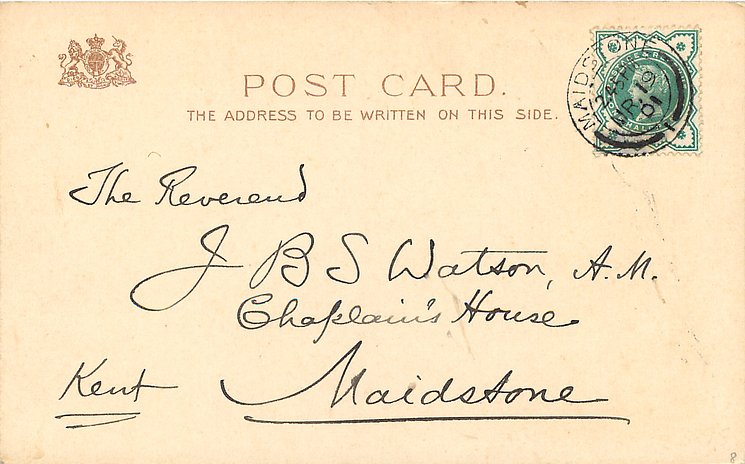 POST CARD.
THE ADDRESS TO BE WRITTEN ON THIS SIDE.
MAIDSTONE
19
01
The Reverend
J B S Watson, A.M.
Chaplain's House
Kent Maidstone
8